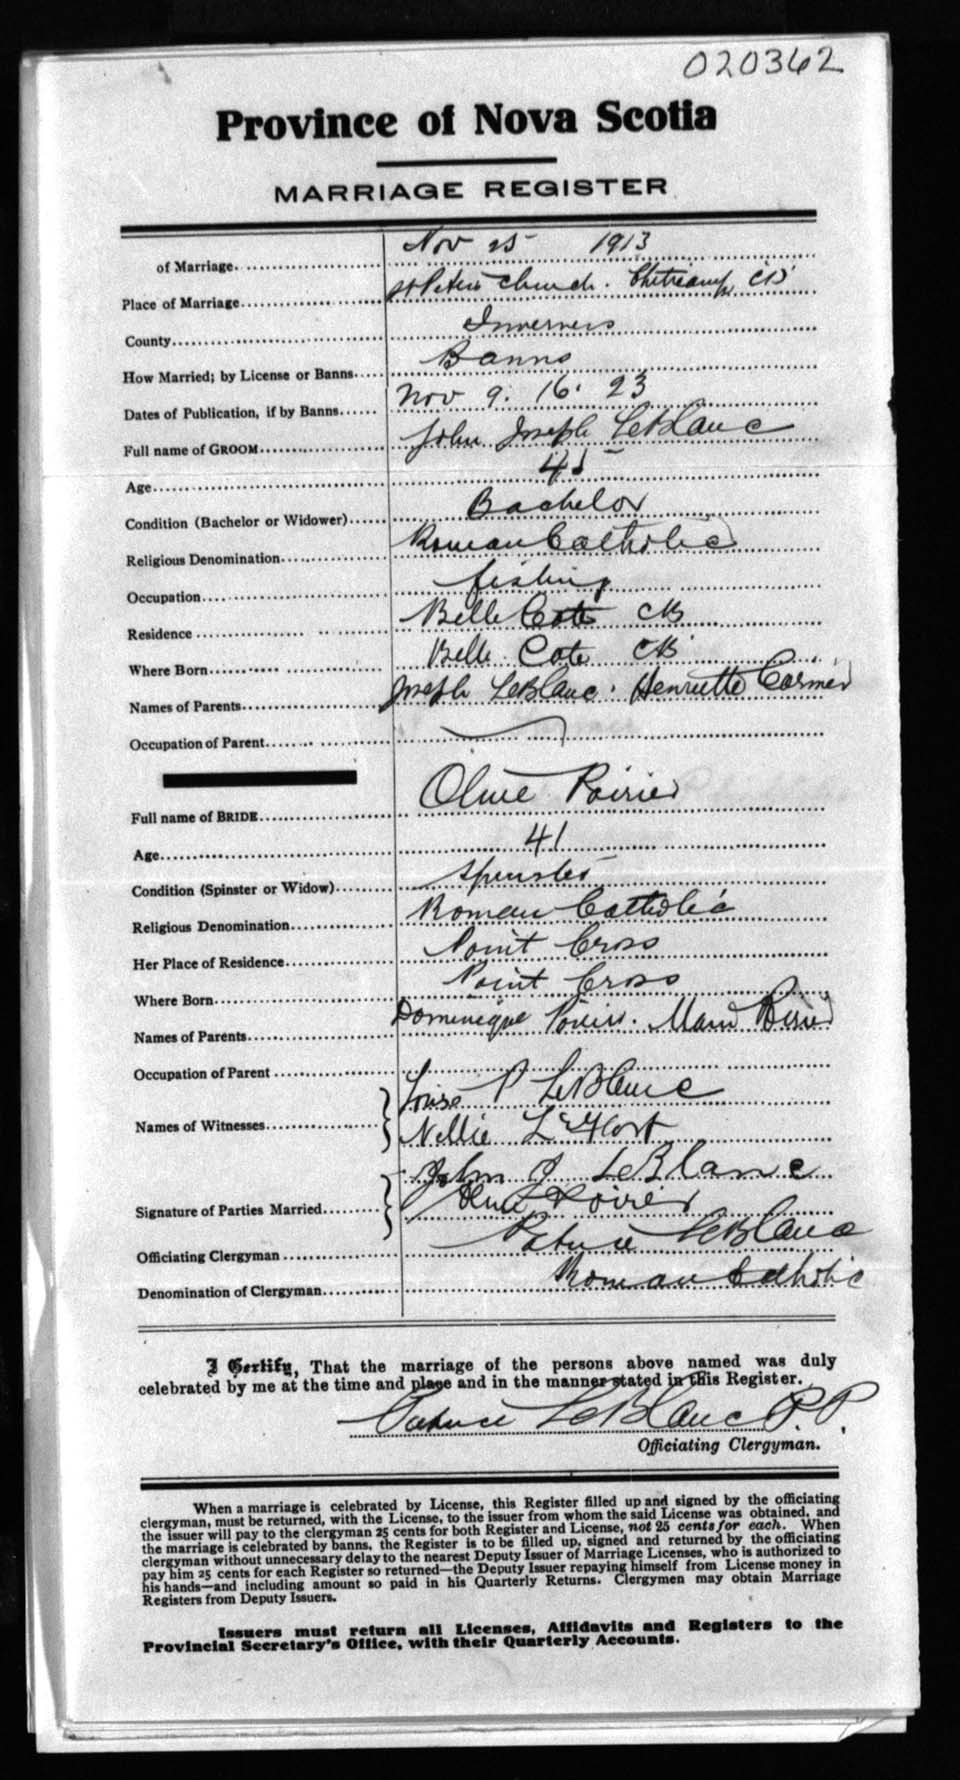 020362
Province of Nova Scotia
MARRIAGE REGISTER
of Marriage Nov 25 1913
Place of Marriage St Peters Church. Cheticamp CB
County Inverness
How Married; by License or Banns Banns
Dates of Publication, if by Banns Nov 9. 16. 23
Full name of GROOM John Joseph LeBlanc
Age 45
Condition (Bachelor or Widower) Bachelor
Religious Denomination Roman Catholic
Occupation fishing
Residence Belle Cote CB
Where Born Belle Cote CB
Names of Parents Joseph LeBlanc. Henriette Cormier
Occupation of Parent
Full name of BRIDE Olive Poirier
Age 41
Condition (Spinster or Widow) Spinster
Religious Denomination Roman Catholic
Her Place of Residence Point Cross
Where Born Point Cross
Names of Parents Dominique Poirier.
Occupation of Parent
Names of Witnesses P LeBlanc
Nellie
Signature of Parties Married John J LeBlanc
Olive Poirier
Officiating Clergyman LeBlanc
Denomination of Clergyman Roman Catholic
I Certify, That the marriage of the persons above named was duly
celebrated by me at the time and place and in the manner stated in this Register.
LeBlanc P.P.
Officiating Clergyman.
When a marriage is celebrated by License, this Register filled up and signed by the officiating
clergyman, must be returned, with the License, to the issuer from whom the said License was obtained, and
the issuer will pay to the clergyman 25 cents for both Register and License, not 25 cents for each. When
the marriage is celebrated by banns, the Register is to be filled up, signed and returned by the officiating
clergyman without unnecessary delay to the nearest Deputy Issuer of Marriage Licenses, who is authorized to
pay him 25 cents for each Register so returned—the Deputy Issuer repaying himself from License money in
his hands—and including amount so paid in his Quarterly Returns. Clergymen may obtain Marriage
Registers from Deputy Issuers.
Issuers must return all Licenses, Affidavits and Registers to the
Provincial Secretary's Office, with their Quarterly Accounts.